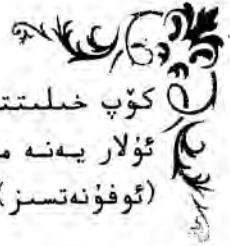 كۆپ خىلىتت
ئۇلار يەنە م
(ئوفۇنەتسىز)